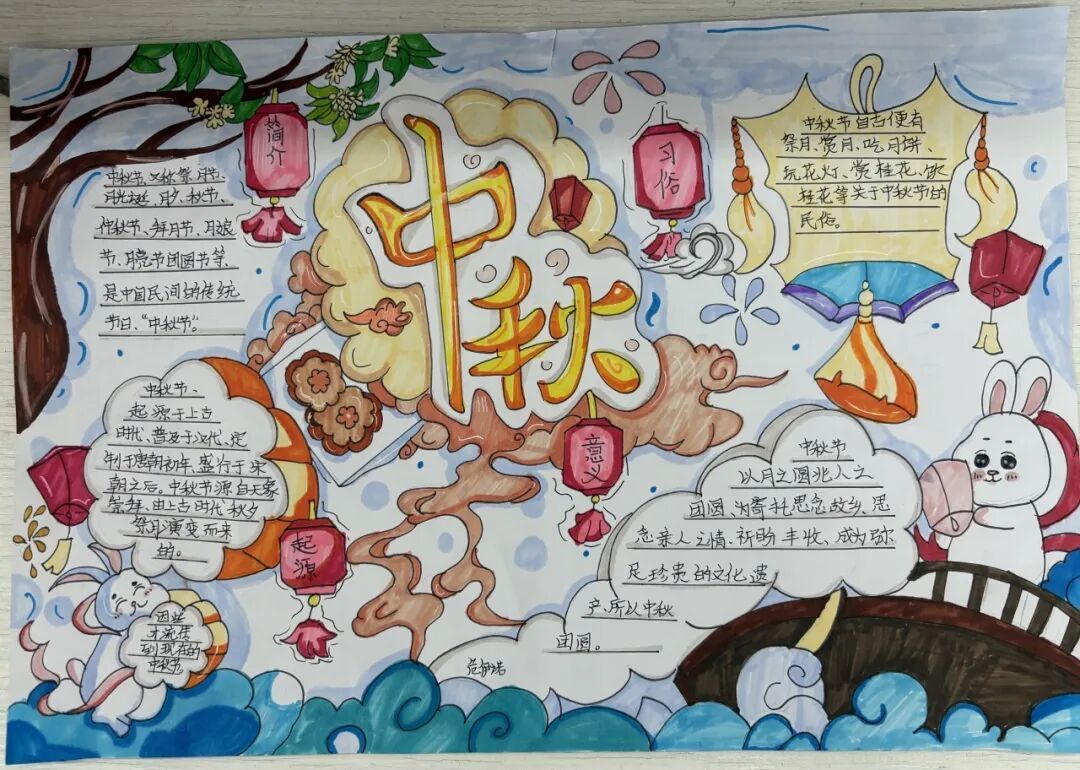 简介
中秋节,又称祭月节、
月光诞、月夕、秋节、
仲秋节、拜月节、月娘
节、月亮节、团圆节等、
是中国民间的传统
节日、“中秋节”。
中秋
习俗
中秋节自古便有
祭月、赏月、吃月饼、
玩花灯、赏桂花、饮
桂花等关于中秋节的
民俗。
起源
中秋节、
起源于上古
时代、普及于汉代、定
制于唐朝初年、盛行于宋
朝之后。中秋节源自天象
崇拜、由上古时代秋夕
祭月演变而来
的。
因此
才流传
到现在的
中秋节
意义
中秋节
以月之圆兆人之
团圆、为寄托思念故乡、思
念亲人之情、祈盼丰收、成为弥
足珍贵的文化遗
产、所以中秋
团圆。